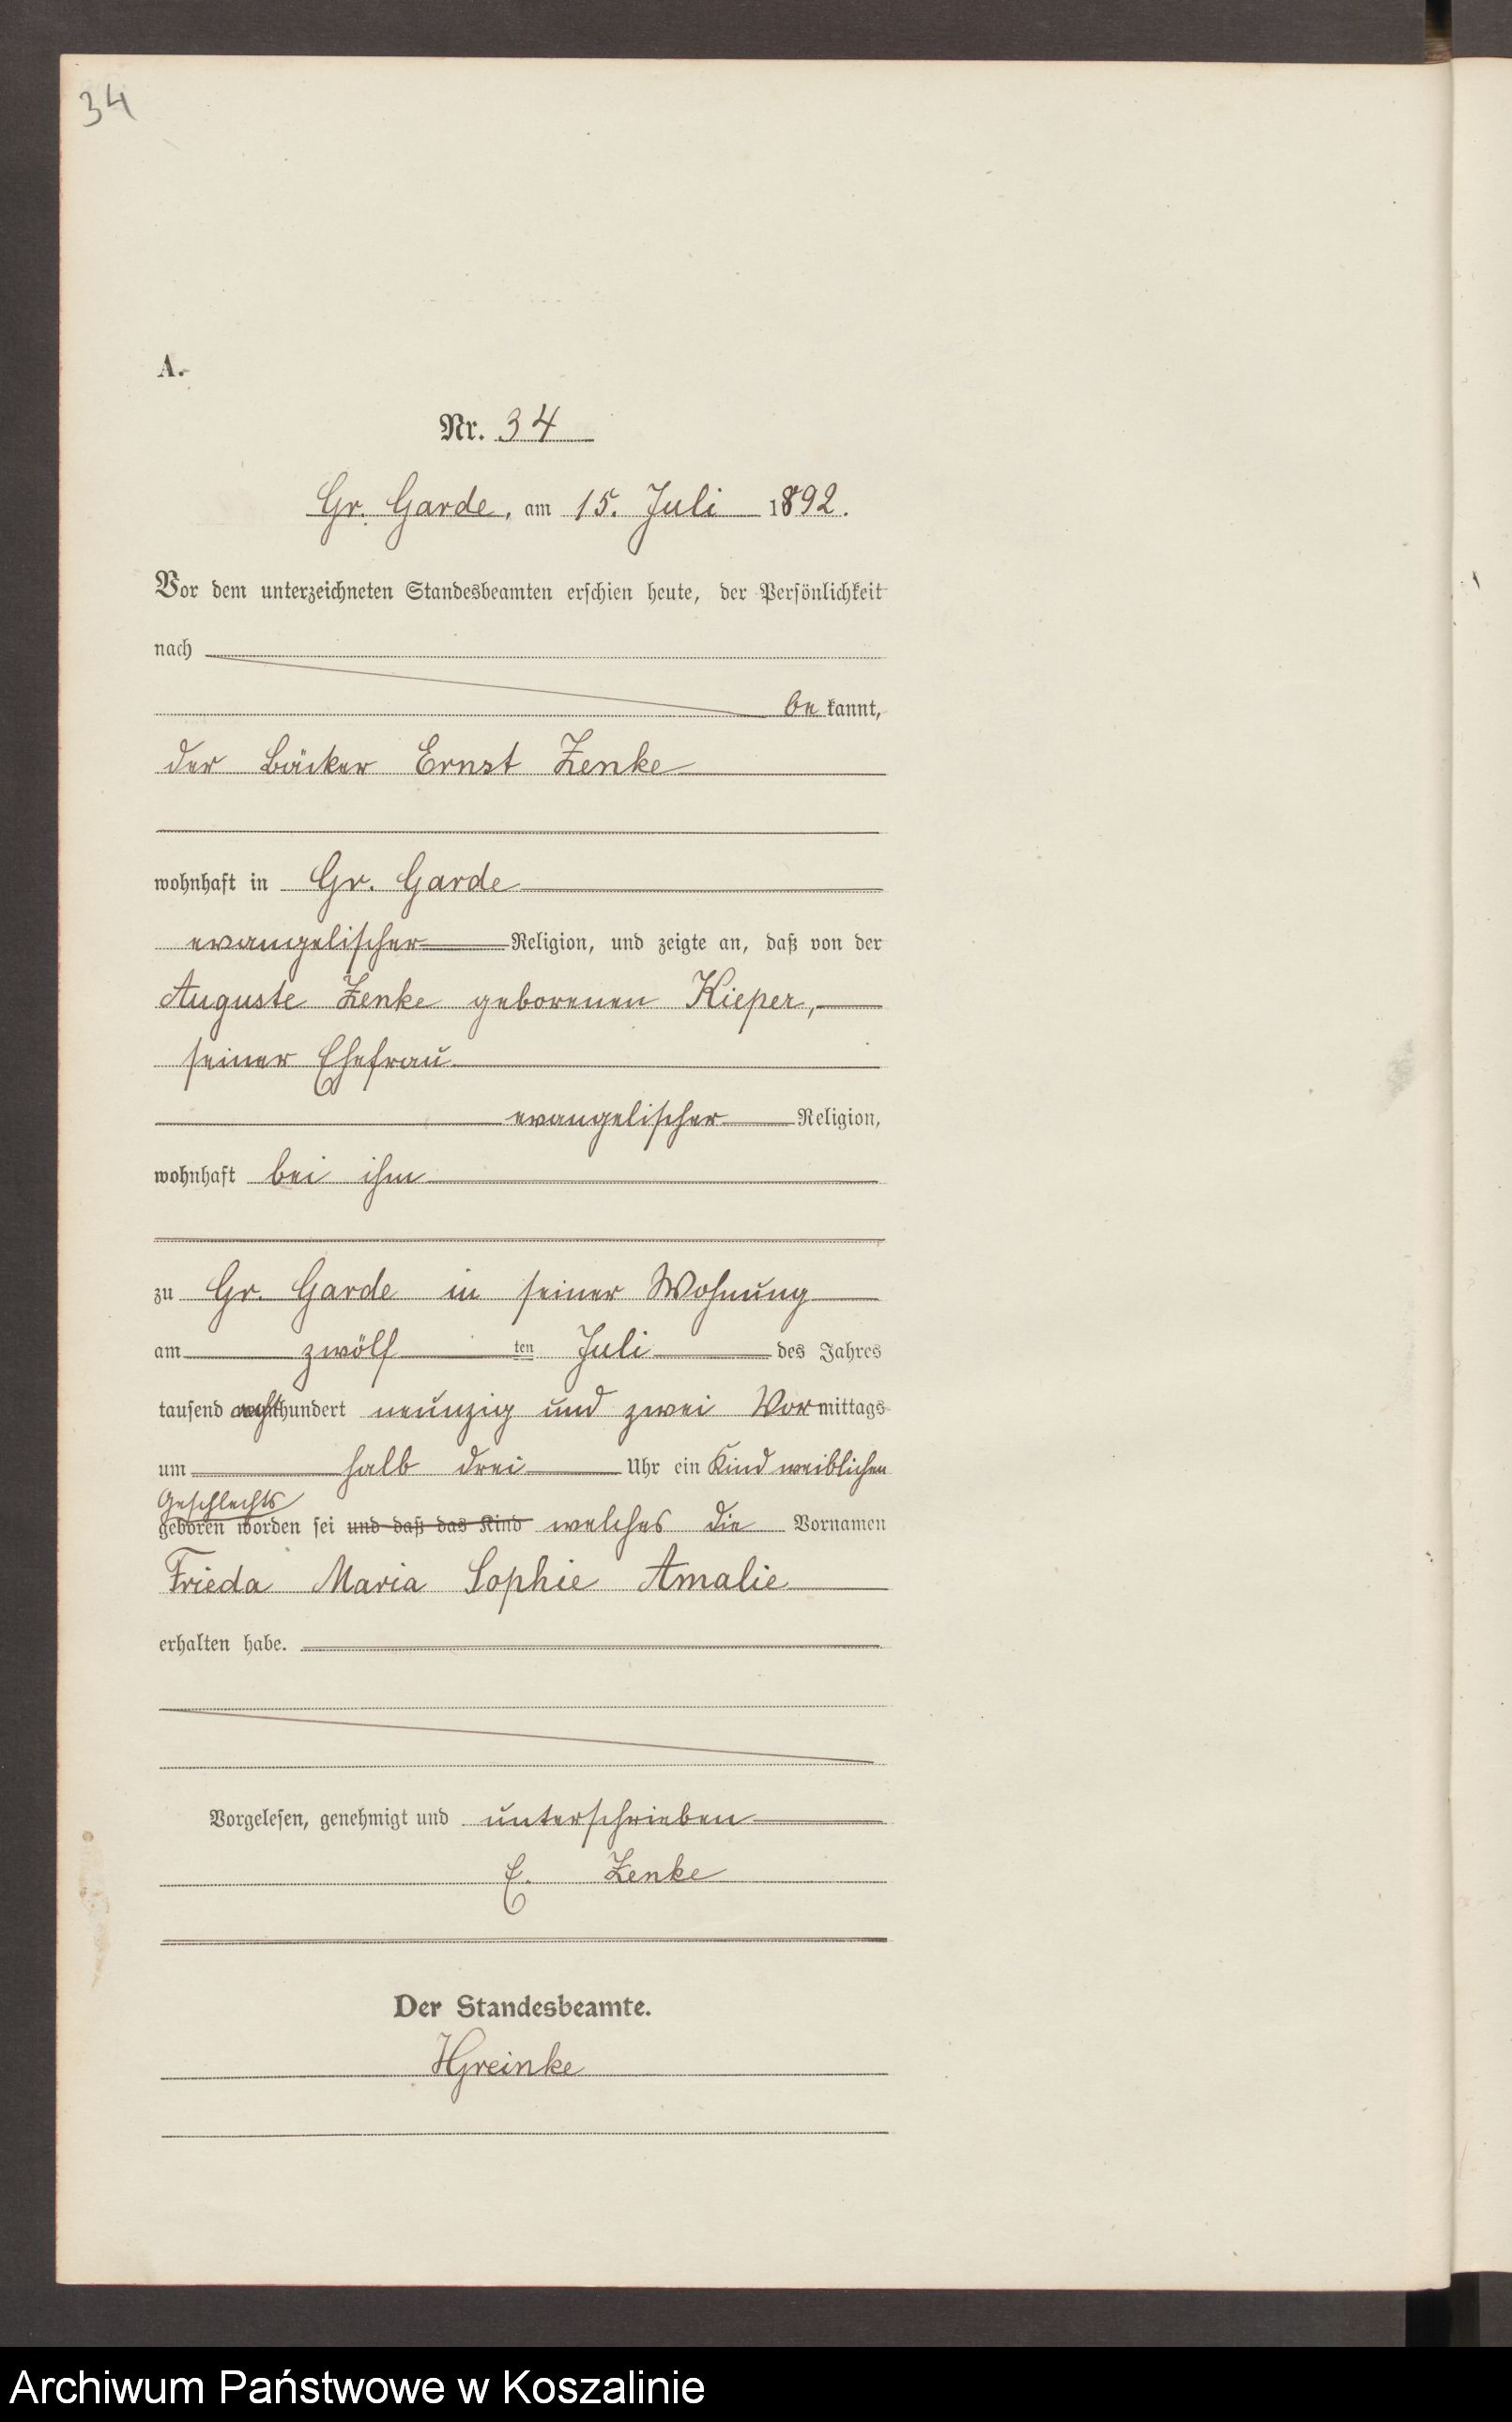 34
A.
Nr. 34
Gr. Garde, am 15. Juli 1892.
Vor dem unterzeichneten Standesbeamten erschien heute, der Persönlichkeit
nach
bekannt,
der Bäcker Ernst Zenke
wohnhaft in Gr. Garde
evangelischer Religion, und zeigte an, daß von der
Auguste Zenke geborenen Kieper,
seiner Ehefrau
evangelischer Religion,
wohnhaft bei ihm
zu Gr. Garde in seiner Wohnung
am zwölf ten Juli des Jahres
tausend achthundert neunzig und zwei Vormittags
um halb drei Uhr ein Kind weiblichen
Geschlechts
geboren worden sei und daß das Kind welches die Vornamen
Frieda Maria Sophie Amalie
erhalten habe.
Vorgelesen, genehmigt und unterschrieben
E. Zenke
Der Standesbeamte.
HGreinke
Archiwum Państwowe w Koszalinie